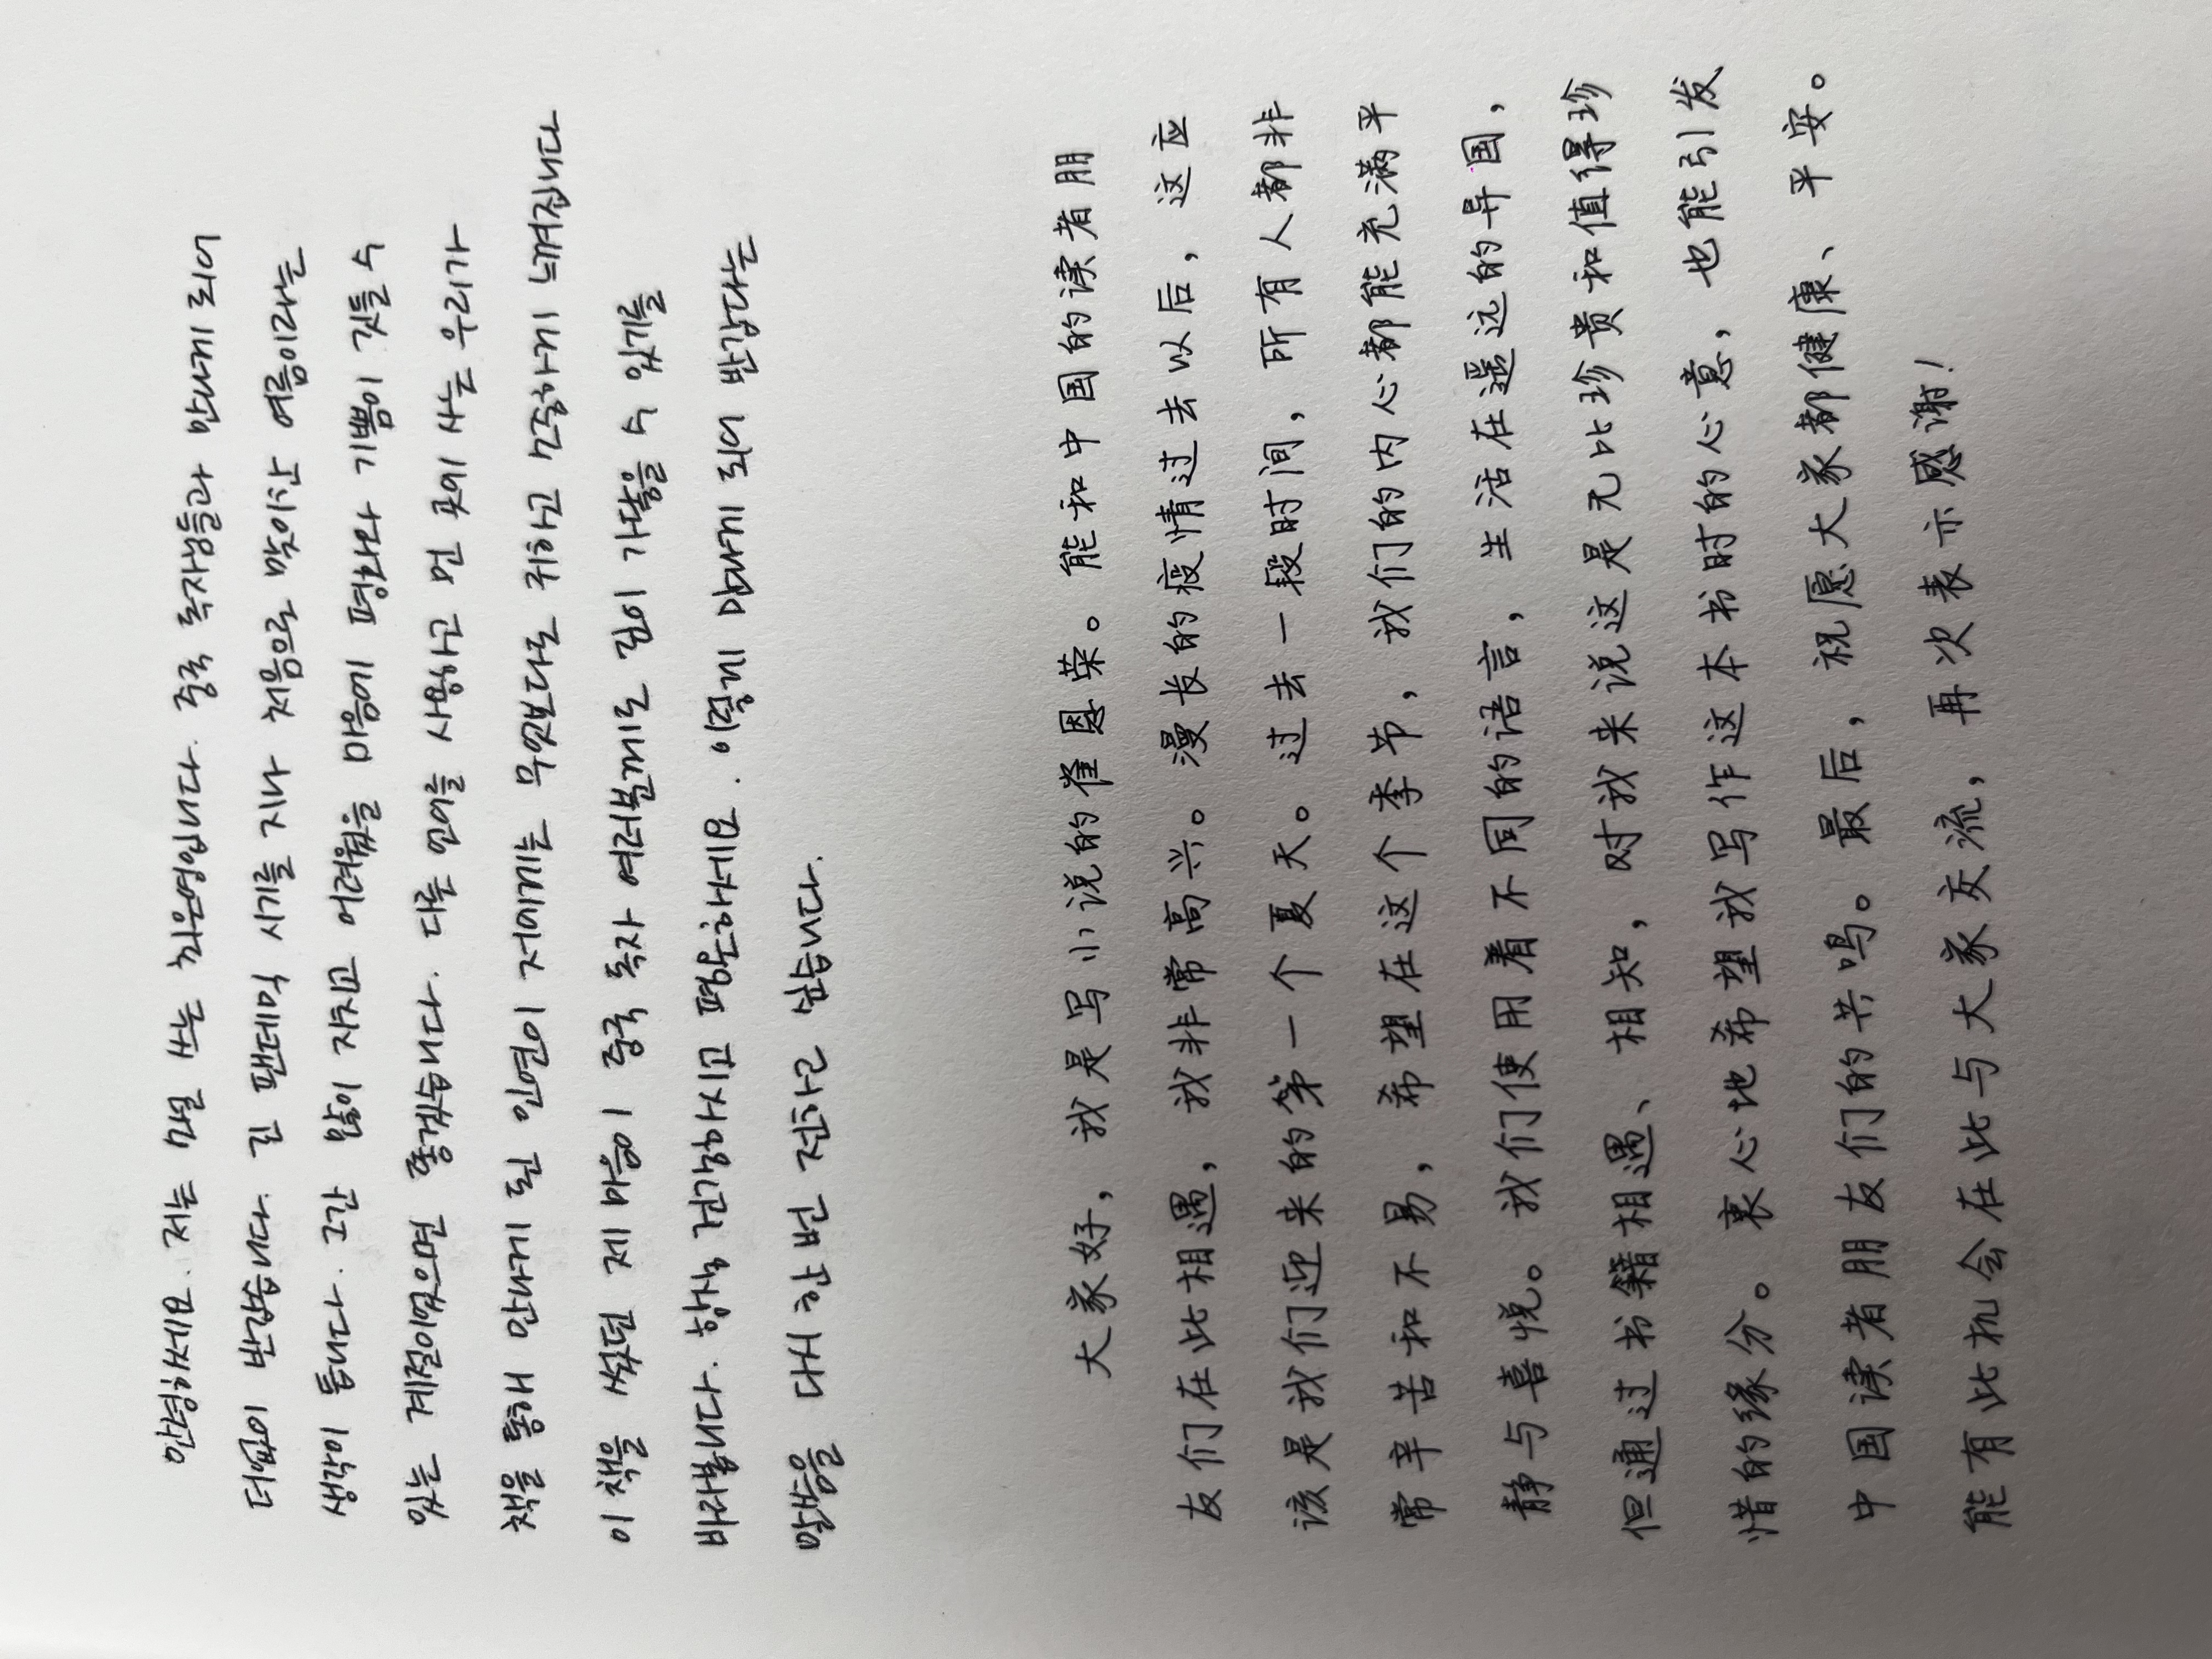 안녕하세요. 저는 소설 쓰는 최은영입니다. 중국 독자님들과 만나게 되어
더없이 반갑습니다. 긴 팬데믹 시기를 지나 처음으로 맞이한 여름이라는
생각이 듭니다. 그간 많이 지치고 어려웠을 마음에 평화와 기쁨이 깃들 수
있는 계절이었으면 좋겠습니다. 다른 언어를 사용하고 먼 곳에 사는 우리가
책을 통해 만나게 된 인연이 저에게는 무엇보다도 귀하고 소중하게 느껴집니다.
이 책을 썼던 제 마음이 중국 독자 여러분에게로 깊이 가닿을 수 있기를
바라봅니다. 항상 건강하시고 평안하세요. 이렇게 만나게 되어 반갑다는
말씀을 다시 한번 전하고 싶습니다.
大家好，我是写小说的崔恩荣。能和中国的读者朋
友们在此相遇，我非常高兴。漫长的疫情过去以后，这应
该是我们迎来的第一个夏天。过去一段时间，所有人都非
常辛苦和不易，希望在这个季节，我们的内心都能充满平
静与喜悦。我们使用着不同的语言，生活在遥远的异国，
但通过书籍相遇、相知，对我来说这是无比珍贵和值得珍
惜的缘分。衷心地希望我写作这本书时的心意，也能引发
中国读者朋友们的共鸣。最后，祝愿大家都健康、平安。
能有此机会在此与大家交流，再次表示感谢！